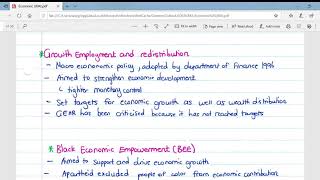 Economic SBA(1).pdf
* Growth Employment and redistribution
- Macro economic policy, adopted by department of Finance 1996
- Aimed to strengthen economic development
↳ tighter monetary control
- Set targets for economic growth as well as wealth distribution
- GEAR has been criticised because it has not reached targets
* Black Economic Empowerment (BEE)
- Aimed to support and drive economic growth
- Apartheid excluded people of color from economic contribution